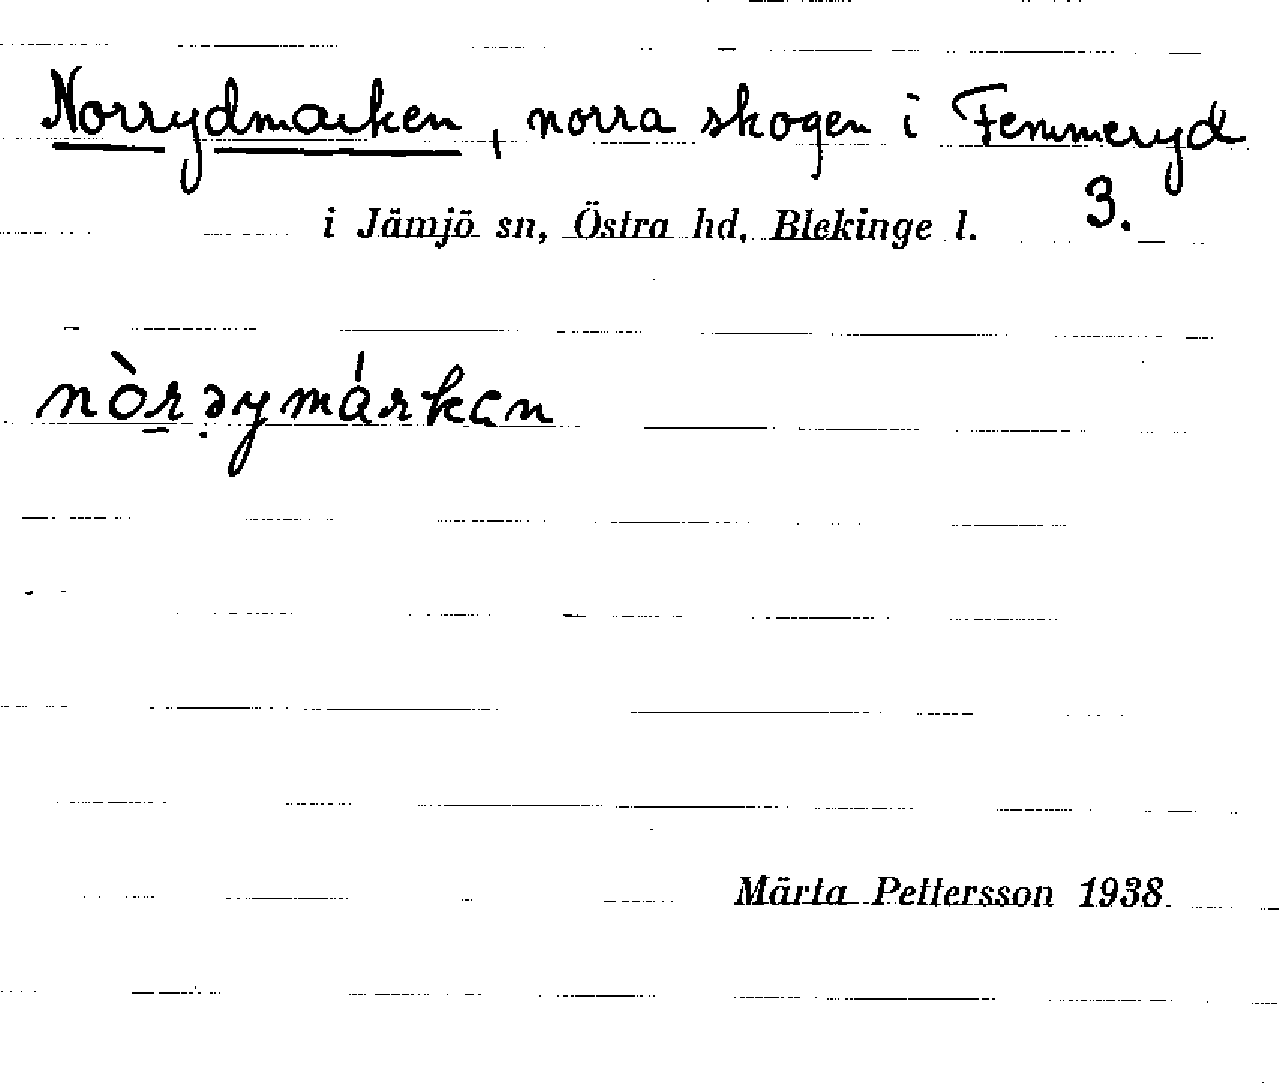 Norrydmarken, norra skogen i Femmeryd
3.
i Jämjö sn, Östra hd, Blekinge l.
nòrəymárkən
Märta Pettersson 1938